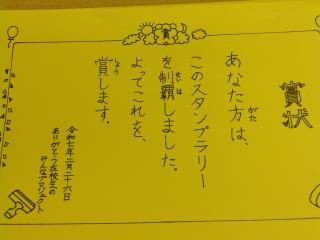 賞
賞状
あなた方は、
がた
このスタンプラリー
を制覇しました。
せいは
よってこれを、
賞します。
しょう
令和七年二月二十六日
ありがとう在校生の
みんなプロジェクト